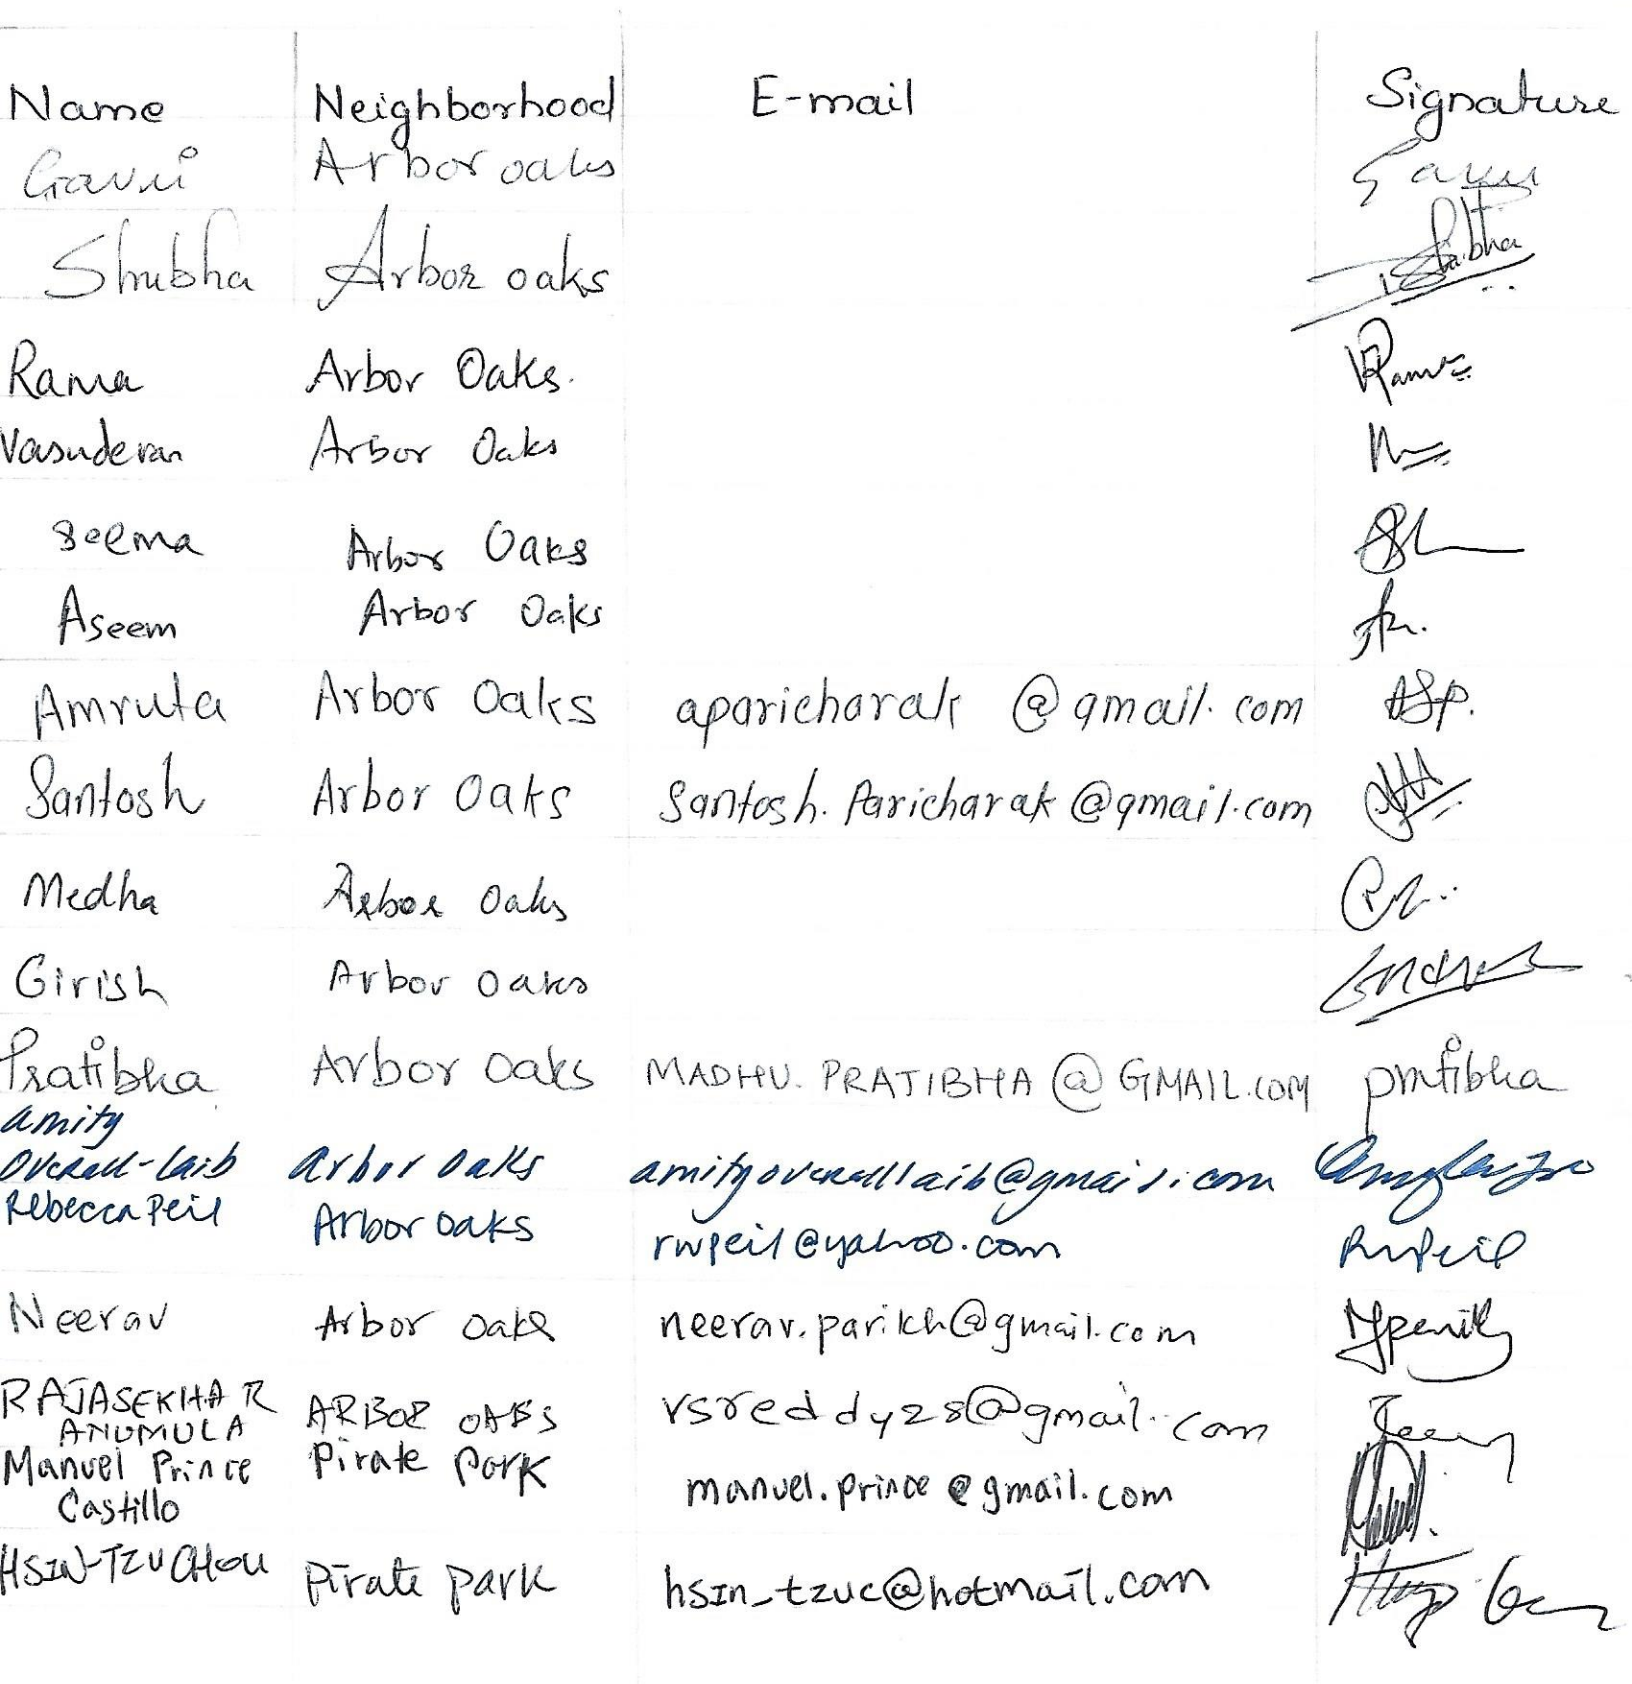 Name Neighborhood E-mail Signature
Gauri Arbor oaks
Shubha Arbor oaks Shubha
Rama Arbor Oaks. Rama
Vasudevan Arbor Oaks
Seema Arbor Oaks
Aseem Arbor Oaks
Amruta Arbor Oaks aparicharak @gmail.com ASP.
Santosh Arbor Oaks Santosh.Paricharak@gmail.com
Medha Arbor Oaks
Girish Arbor Oaks
Pratibha Arbor Oaks MADHU.PRATIBHA@GMAIL.COM pratibha
Amity
Overall-Laib Arbor Oaks amityoveralllaib@gmail.com
Rebecca Peil Arbor Oaks rwpeil@yahoo.com RWPeil
Neerav Arbor Oaks neerav.parikh@gmail.com
RAJASEKHAR ARBOR OAKS vsreddy28@gmail.com
ANUMULA
Manuel Prince Pirate Park manuel.prince@gmail.com
Castillo
HSIN-TZU CHOU Pirate park hsin_tzuc@hotmail.com